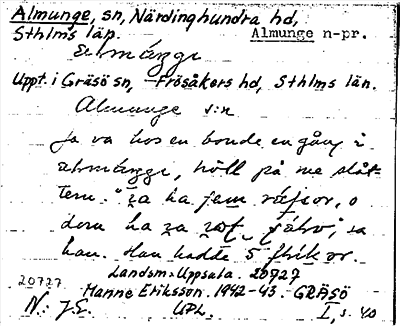 Almunge, sn, Närdinghundra hd,
Sthlms län. Almunge n-pr.
almuŋge
Uppt. i Gräsö sn, Frösåkers hd, Sthlms län.
Almunge s:n
Ja va hos en bonde en gång i
almuŋge, höll på me slåt-
tern. "Ja ha fem räfsor, o
dom ha ja själv", sa
han. Han hadde 5 flickor.
Landsm: Uppsala. 20727
20727
Manne Eriksson. 1942-43. GRÄSÖ
N: J.E. UPL. I, s. 40